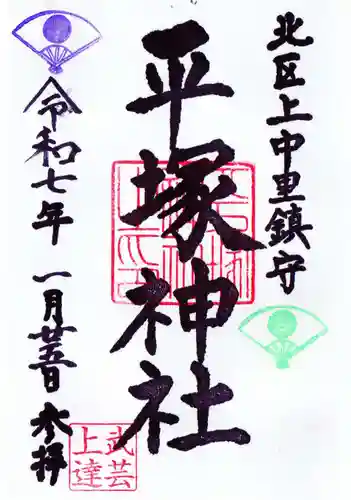 北区上中里鎮守
平塚神社
令和七年 一月廿五日 参拝
武芸
上達